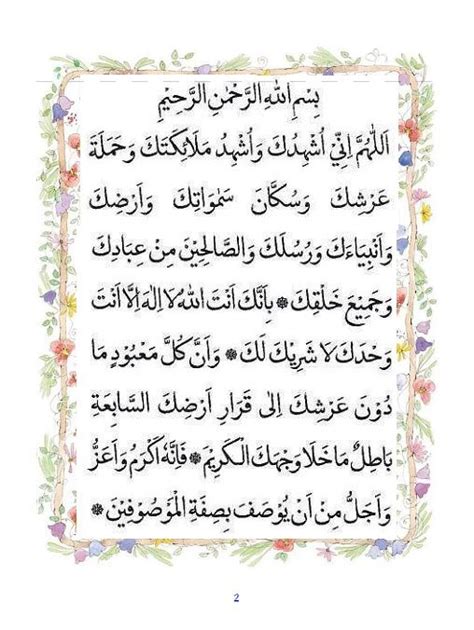 بِسْمِ اللهِ الرَّحْمٰنِ الرَّحِيْمِ
اَللّٰهُمَّ اِنِّيْ اُشْهِدُكَ وَاُشْهِدُ مَلَائِكَتَكَ وَحَمَلَةَ
عَرْشِكَ وَسُكَّانَ سَمٰوَاتِكَ وَاَرْضِكَ
وَاَنْبِيَاءَكَ وَرُسُلَكَ وَالصَّالِحِيْنَ مِنْ عِبَادِكَ
وَجَمِيْعَ خَلْقِكَ ۞ بِاَنَّكَ اَنْتَ اللهُ لَا اِلٰهَ اِلَّا اَنْتَ
وَحْدَكَ لَا شَرِيْكَ لَكَ ۞ وَاَنَّ كُلَّ مَعْبُوْدٍ مَا
دُوْنَ عَرْشِكَ اِلٰى قَرَارِ اَرْضِكَ السَّابِعَةِ
بَاطِلٌ مَا خَلَا وَجْهَكَ الْكَرِيْمَ ۞ فَاِنَّهٗ اَكْرَمُ وَاَعَزُّ
وَاَجَلُّ مِنْ اَنْ يُوْصَفَ بِصِفَةِ الْمَوْصُوْفِيْنَ ۞
2